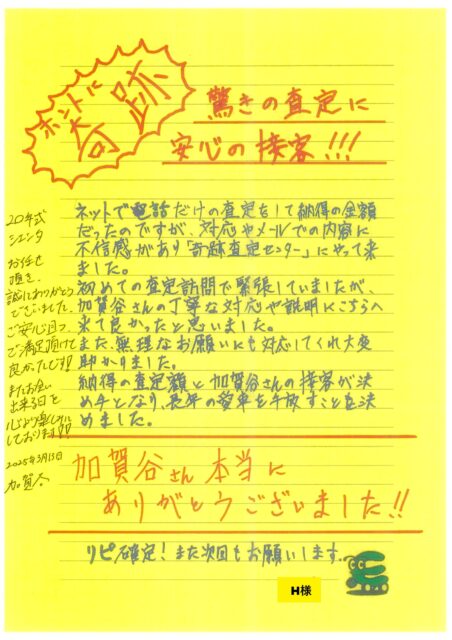 ホントに
奇跡
驚きの査定に
安心の接客!!!
ネットで電話だけの査定をして納得の金額
だったのですが、対応やメールでの内容に
不信感があり「奇跡査定センター」にやって来
ました。
初めての査定訪問で緊張していましたが、
加賀谷さんの丁寧な対応や説明にこちらへ
来て良かったと思いました。
また、無理なお願いにも対応してくれ大変
助かりました。
納得の査定額と加賀谷さんの接客が決
め手となり、長年の愛車を手放すことを決
めました。
20年式
シエンタ
お任せ
頂き、
誠にありがとう
ございました。
ご安心且つ、
ご満足頂けて
良かったです!!
またお会い
出来る日を
心より楽しみに
しております!!
2025年3月13日
加賀谷
加賀谷さん本当に
ありがとうございました!!
リピ確定!また次回もお願いします。
H様